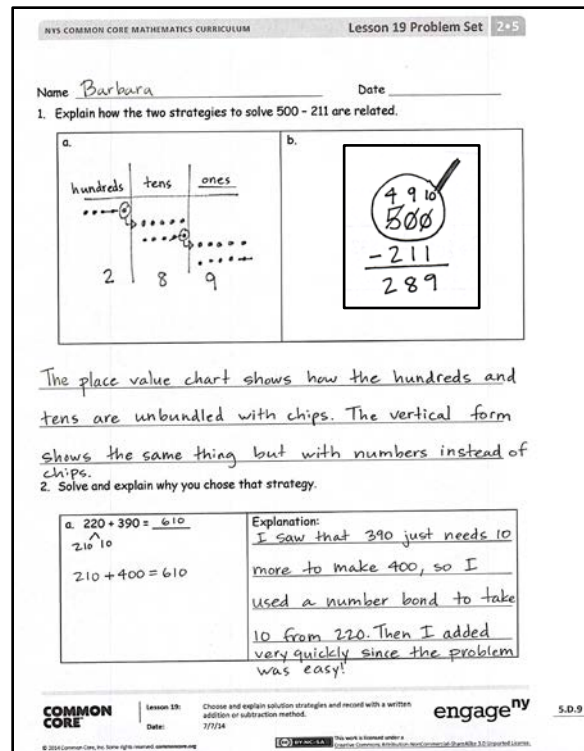 NYS COMMON CORE MATHEMATICS CURRICULUM
Lesson 19 Problem Set 2•5
Name Barbara
Date
1. Explain how the two strategies to solve 500 – 211 are related.
a.
hundreds tens ones
2 8 9
b.
4 9 10
500
- 211
289
The place value chart shows how the hundreds and
tens are unbundled with chips. The vertical form
shows the same thing but with numbers instead of
chips.
2. Solve and explain why you chose that strategy.
a. 220 + 390 = 610
210 10
210 + 400 = 610
Explanation:
I saw that 390 just needs 10
more to make 400, so I
used a number bond to take
10 from 220. Then I added
very quickly since the problem
was easy!
COMMON
CORE
Lesson 19:
Choose and explain solution strategies and record with a written
addition or subtraction method.
Date:
7/7/14
engage ny
5.D.9
© 2014 Common Core, Inc. Some rights reserved. commoncore.org
CC BY-NC-SA
This work is licensed under a
Creative Commons Attribution-NonCommercial-ShareAlike 3.0 Unported License.